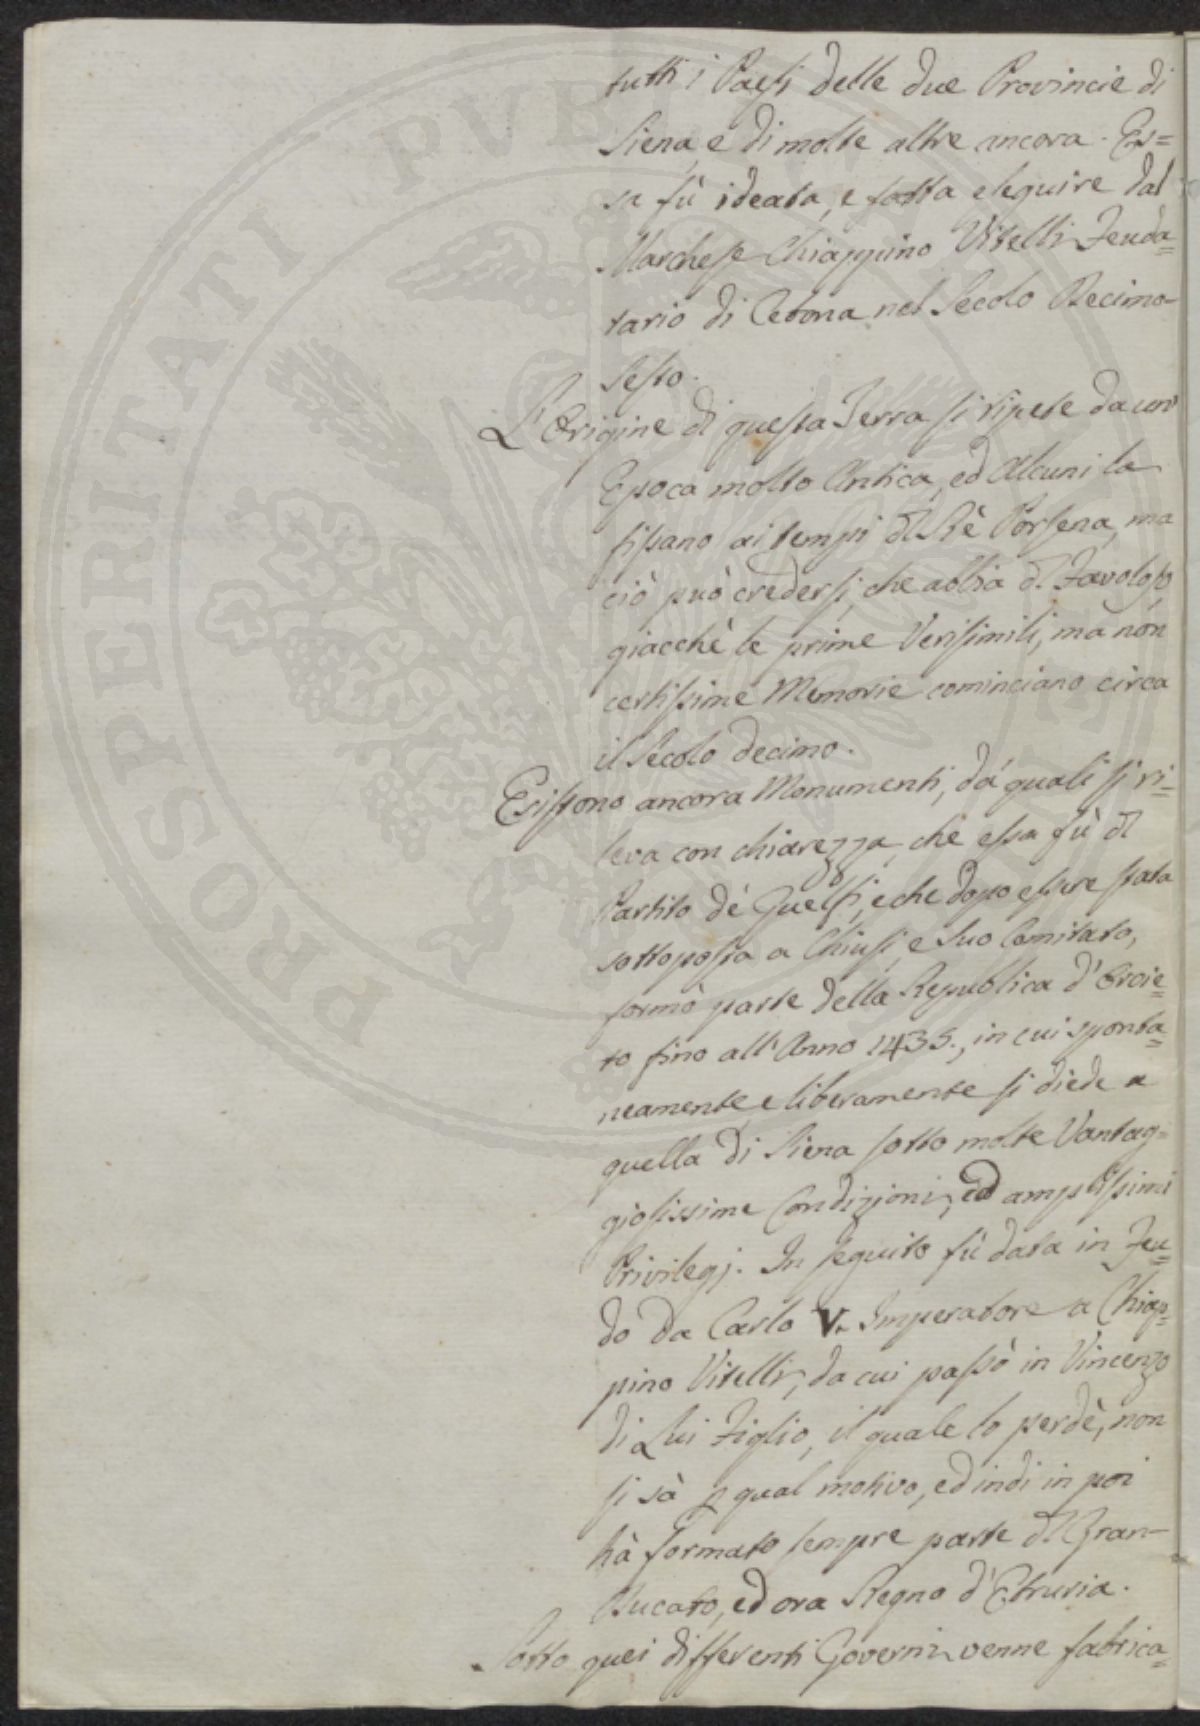 tutti i Paesi delle due Provincie di
Siena, e di molte altre ancora. Es=
sa fù ideata, e fatta eseguire dal
Marchese Chiappino Vitelli Feuda=
tario di Cetona nel Secolo Decimo-
Sesto.
L'Origine di questa Terra si ripete da un'
Epoca molto Antica, ed Alcuni la
fissano ai tempi dl Rè Porsena, ma
ciò può credersi, che abbia dl Favoloso,
giacchè le prime Verisimili, ma non
certissime Memorie cominciano circa
il Secolo decimo.
Esistono ancora Monumenti, da' quali si ri=
leva con chiarezza, che essa fù dl
Partito de' Guelfi, e che dopo essere stata
sottoposta a Chiusi, e suo Comitato,
formò parte della Republica d'Orvie=
to fino all'Anno 1435., in cui sponta=
neamente, e liberamente si diede a
quella di Siena sotto molte Vantag=
giosissime Condizioni, ed amplissimi
Privilegj. In seguito fù data in Feu=
do da Carlo V. Imperatore a Chiap=
pino Vitelli, da cui passò in Vincenzo
di Lui Figlio, il quale lo perdè, non
si sà p qual motivo, ed indi in poi
hà formato sempre parte dl Gran-
Ducato, ed ora Regno d'Etruria.
Sotto quei differenti Governi venne fabrica=
PROSPERITATI PVBLICAE